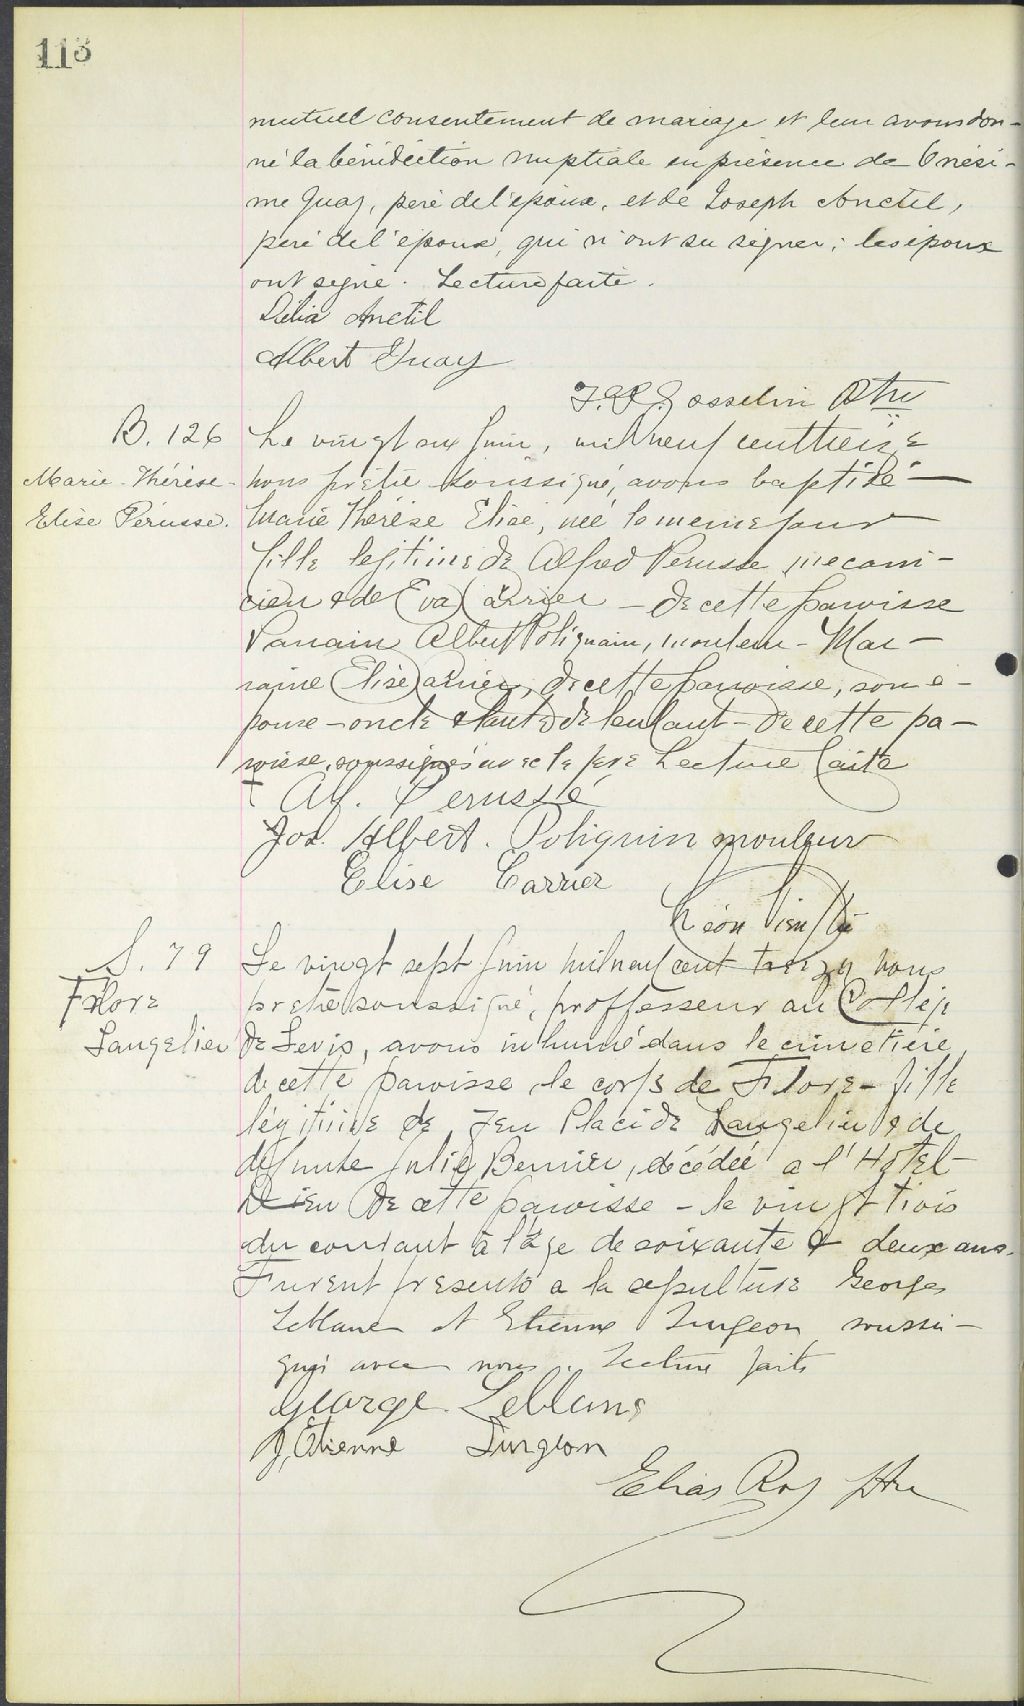 113
mutuel consentement de mariage et leur avons don-
né la bénédiction nuptiale en présence de Onési-
me Guay, père de l'époux, et de Joseph Anctil,
père de l'épouse, qui n'ont su signer; les époux
ont signé. Lecture faite.
Délia Anctil
Albert Guay
Gosselin Ptre
B. 126
Marie-Thérèse-
Elise Pérusse.
Le vingt six Juin, mil neuf cent treize
nous prêtre soussigné, avons baptisé
Marie Thérèse Elise, née le meme jour
fille legitime de Alfred Perusse mecani-
cien & de Eva Carrier - de cette paroisse
Parrain Albert Poliquin, mouleur - Mar-
raine Elise Carrier, de cette paroisse, son é-
pouse - oncle & tante de l'enfant - de cette pa-
roisse, soussignés avec le père Lecture faite
Alf. Perusse
Jos. Albert. Poliquin mouleur
Elise Carrier
Léon Vien Ptre
S. 79
Flore
Langelier
Le vingt sept Juin mil neuf cent treize nous
prêtre soussigné, proffesseur au Collège
de Levis, avons inhumé dans le cimetière
de cette paroisse le corps de Flore - fille
légitime de feu Placide Langelier & de
defunte Julie Bernier, décédée a l'Hotel-
Dieu de cette paroisse - le vingt trois
du courant à l'âge de soixante & deux ans.
Furent presents a la sepulture Georges
Leblanc et Etienne Turgeon soussi-
gnés avec nous. Lecture faite
George Leblanc
J. Etienne Turgeon
Elias Roy Ptre